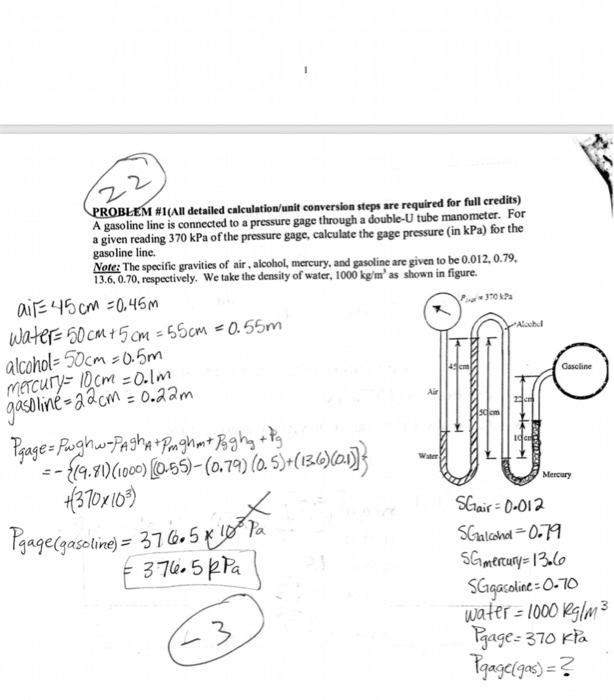 22
PROBLEM #1(All detailed calculation/unit conversion steps are required for full credits)
A gasoline line is connected to a pressure gage through a double-U tube manometer. For
a given reading 370 kPa of the pressure gage, calculate the gage pressure (in kPa) for the
gasoline line.
Note: The specific gravities of air , alcohol, mercury, and gasoline are given to be 0.012, 0.79,
13.6, 0.70, respectively. We take the density of water, 1000 kg/m³ as shown in figure.
air= 45cm =0.45m
water= 50cm+5cm = 55cm = 0.55m
alcohol= 50cm = 0.5m
mercury= 10cm =0.1m
gasoline = 22cm = 0.22m
Pgage= Pwghw-PAghA+Pmghm+Pgghg +Pg
= -{(9.81)(1000) [(0.55)-(0.79)(0.5)+(13.6)(0.1)]}
+(370x10³)
Pgage(gasoline) = 376.5 x 10³ Pa
= 376.5 kPa
-3
= 370 kPa
Alcohol
45 cm
Gasoline
Air
22 cm
50 cm
10 cm
Water
Mercury
SGair = 0.012
SGalcohol = 0.79
SGmercury= 13.6
SGgasoline = 0.70
water = 1000 kg/m³
Pgage= 370 kPa
Pgage(gas) = ?